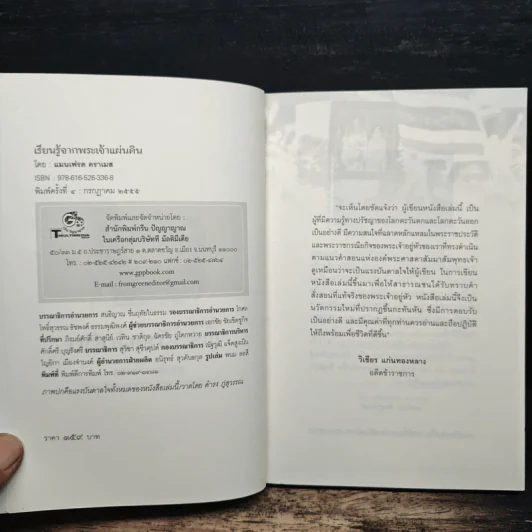 เรียนรู้จากพระเจ้าแผ่นดิน
โดย : แมนเฟรด คราเมส
ISBN : 978-616-526-336-8
พิมพ์ครั้งที่ ๔ : กรกฎาคม ๒๕๕๕
จัดพิมพ์และจัดจำหน่ายโดย :
สำนักพิมพ์กรีน ปัญญาญาณ
ในเครือกลุ่มบริษัทที มัลติมีเดีย
ถ.ตลาดขวัญ อ.เมือง จ.นนทบุรี ๑๑๐๐๐
www.gppbook.com
E-mail : fromgreeneditor@gmail.com
บรรณาธิการอำนวยการ รองบรรณาธิการอำนวยการ
ผู้ช่วยบรรณาธิการอำนวยการ
ที่ปรึกษา บรรณาธิการบริหาร
บรรณาธิการ กองบรรณาธิการ
ผู้อำนวยการฝ่ายผลิต รูปเล่ม
พิมพ์ที่
ภาพปกคือแรงบันดาลใจทั้งหมดของหนังสือเล่มนี้/วาดโดย
ราคา ๑๕๙ บาท
"จะเห็นโดยชัดแจ้งว่า ผู้เขียนหนังสือเล่มนี้ เป็น
ผู้ที่มีความรู้ทางปรัชญาของโลกตะวันตกและโลกตะวันออก
เป็นอย่างดี มีความสนใจที่ฉลาดหลักแหลมในพระราชประวัติ
และพระราชกรณียกิจของพระเจ้าอยู่หัวของเราที่ทรงดำเนิน
ตามแนวคำสอนแห่งองค์พระศาสดาสัมมาสัมพุทธเจ้า
ดูเหมือนว่าจะเป็นแรงบันดาลใจให้ผู้เขียน ในการเขียน
หนังสือเล่มนี้ขึ้นมาเพื่อให้สาธารณชนได้รับทราบคำ
สั่งสอนที่แท้จริงของพระเจ้าอยู่หัว หนังสือเล่มนี้จึงเป็น
นวัตกรรมใหม่ที่ปรากฏขึ้นกะทันหัน ซึ่งมีการตอบรับ
เป็นอย่างดี และมีคุณค่าที่ทุกท่านควรอ่านและถือปฏิบัติ
ให้ถึงพร้อมเพื่อชีวิตที่ดีขึ้น"
วิเชียร แก่นทองหลาง
อดีตข้าราชการ